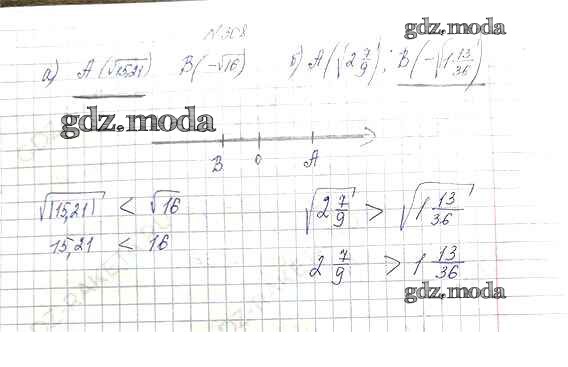 №308
gdz.moda
а) A (√15,21) B(-√16) б) A(√2 7/9); B(-√1 13/36)
gdz.moda
B 0 A
√(15,21) < √16 √2 7/9 > √1 13/36
15,21 < 16 2 7/9 > 1 13/36
gdz.moda